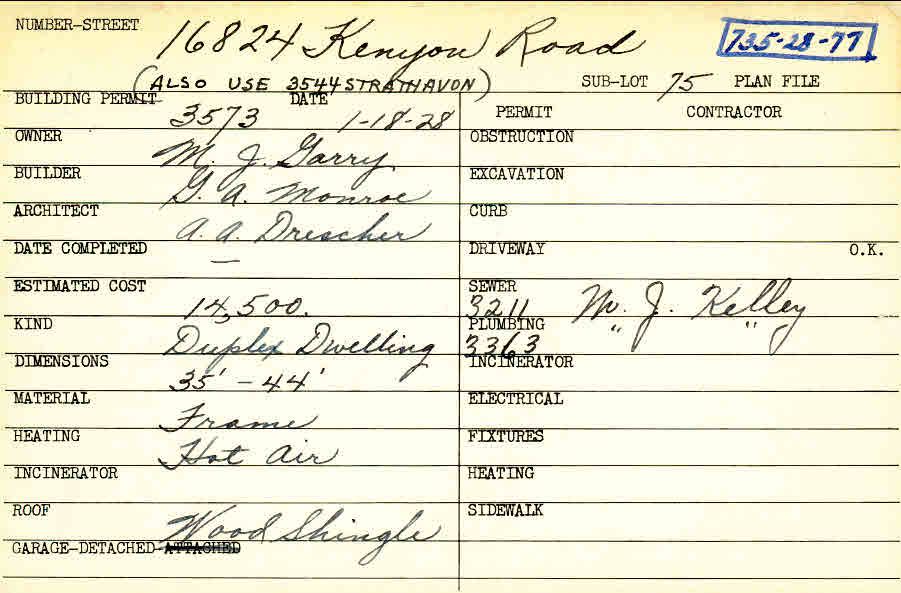 NUMBER-STREET 16824 Kenyon Road 735-28-77
(ALSO USE 3544 STRATHAVON) SUB-LOT 75 PLAN FILE
BUILDING PERMIT 3573 DATE 1-18-28
OWNER M. J. Garry
BUILDER G. A. Monroe
ARCHITECT A. A. Drescher
DATE COMPLETED —
ESTIMATED COST 14,500.
KIND Duplex Dwelling
DIMENSIONS 35' - 44'
MATERIAL Frame
HEATING Hot Air
INCINERATOR
ROOF Wood Shingle
GARAGE-DETACHED-ATTACHED
PERMIT CONTRACTOR
OBSTRUCTION
EXCAVATION
CURB
DRIVEWAY O.K.
SEWER 3211 M. J. Kelley
PLUMBING 3363 " "
INCINERATOR
ELECTRICAL
FIXTURES
HEATING
SIDEWALK